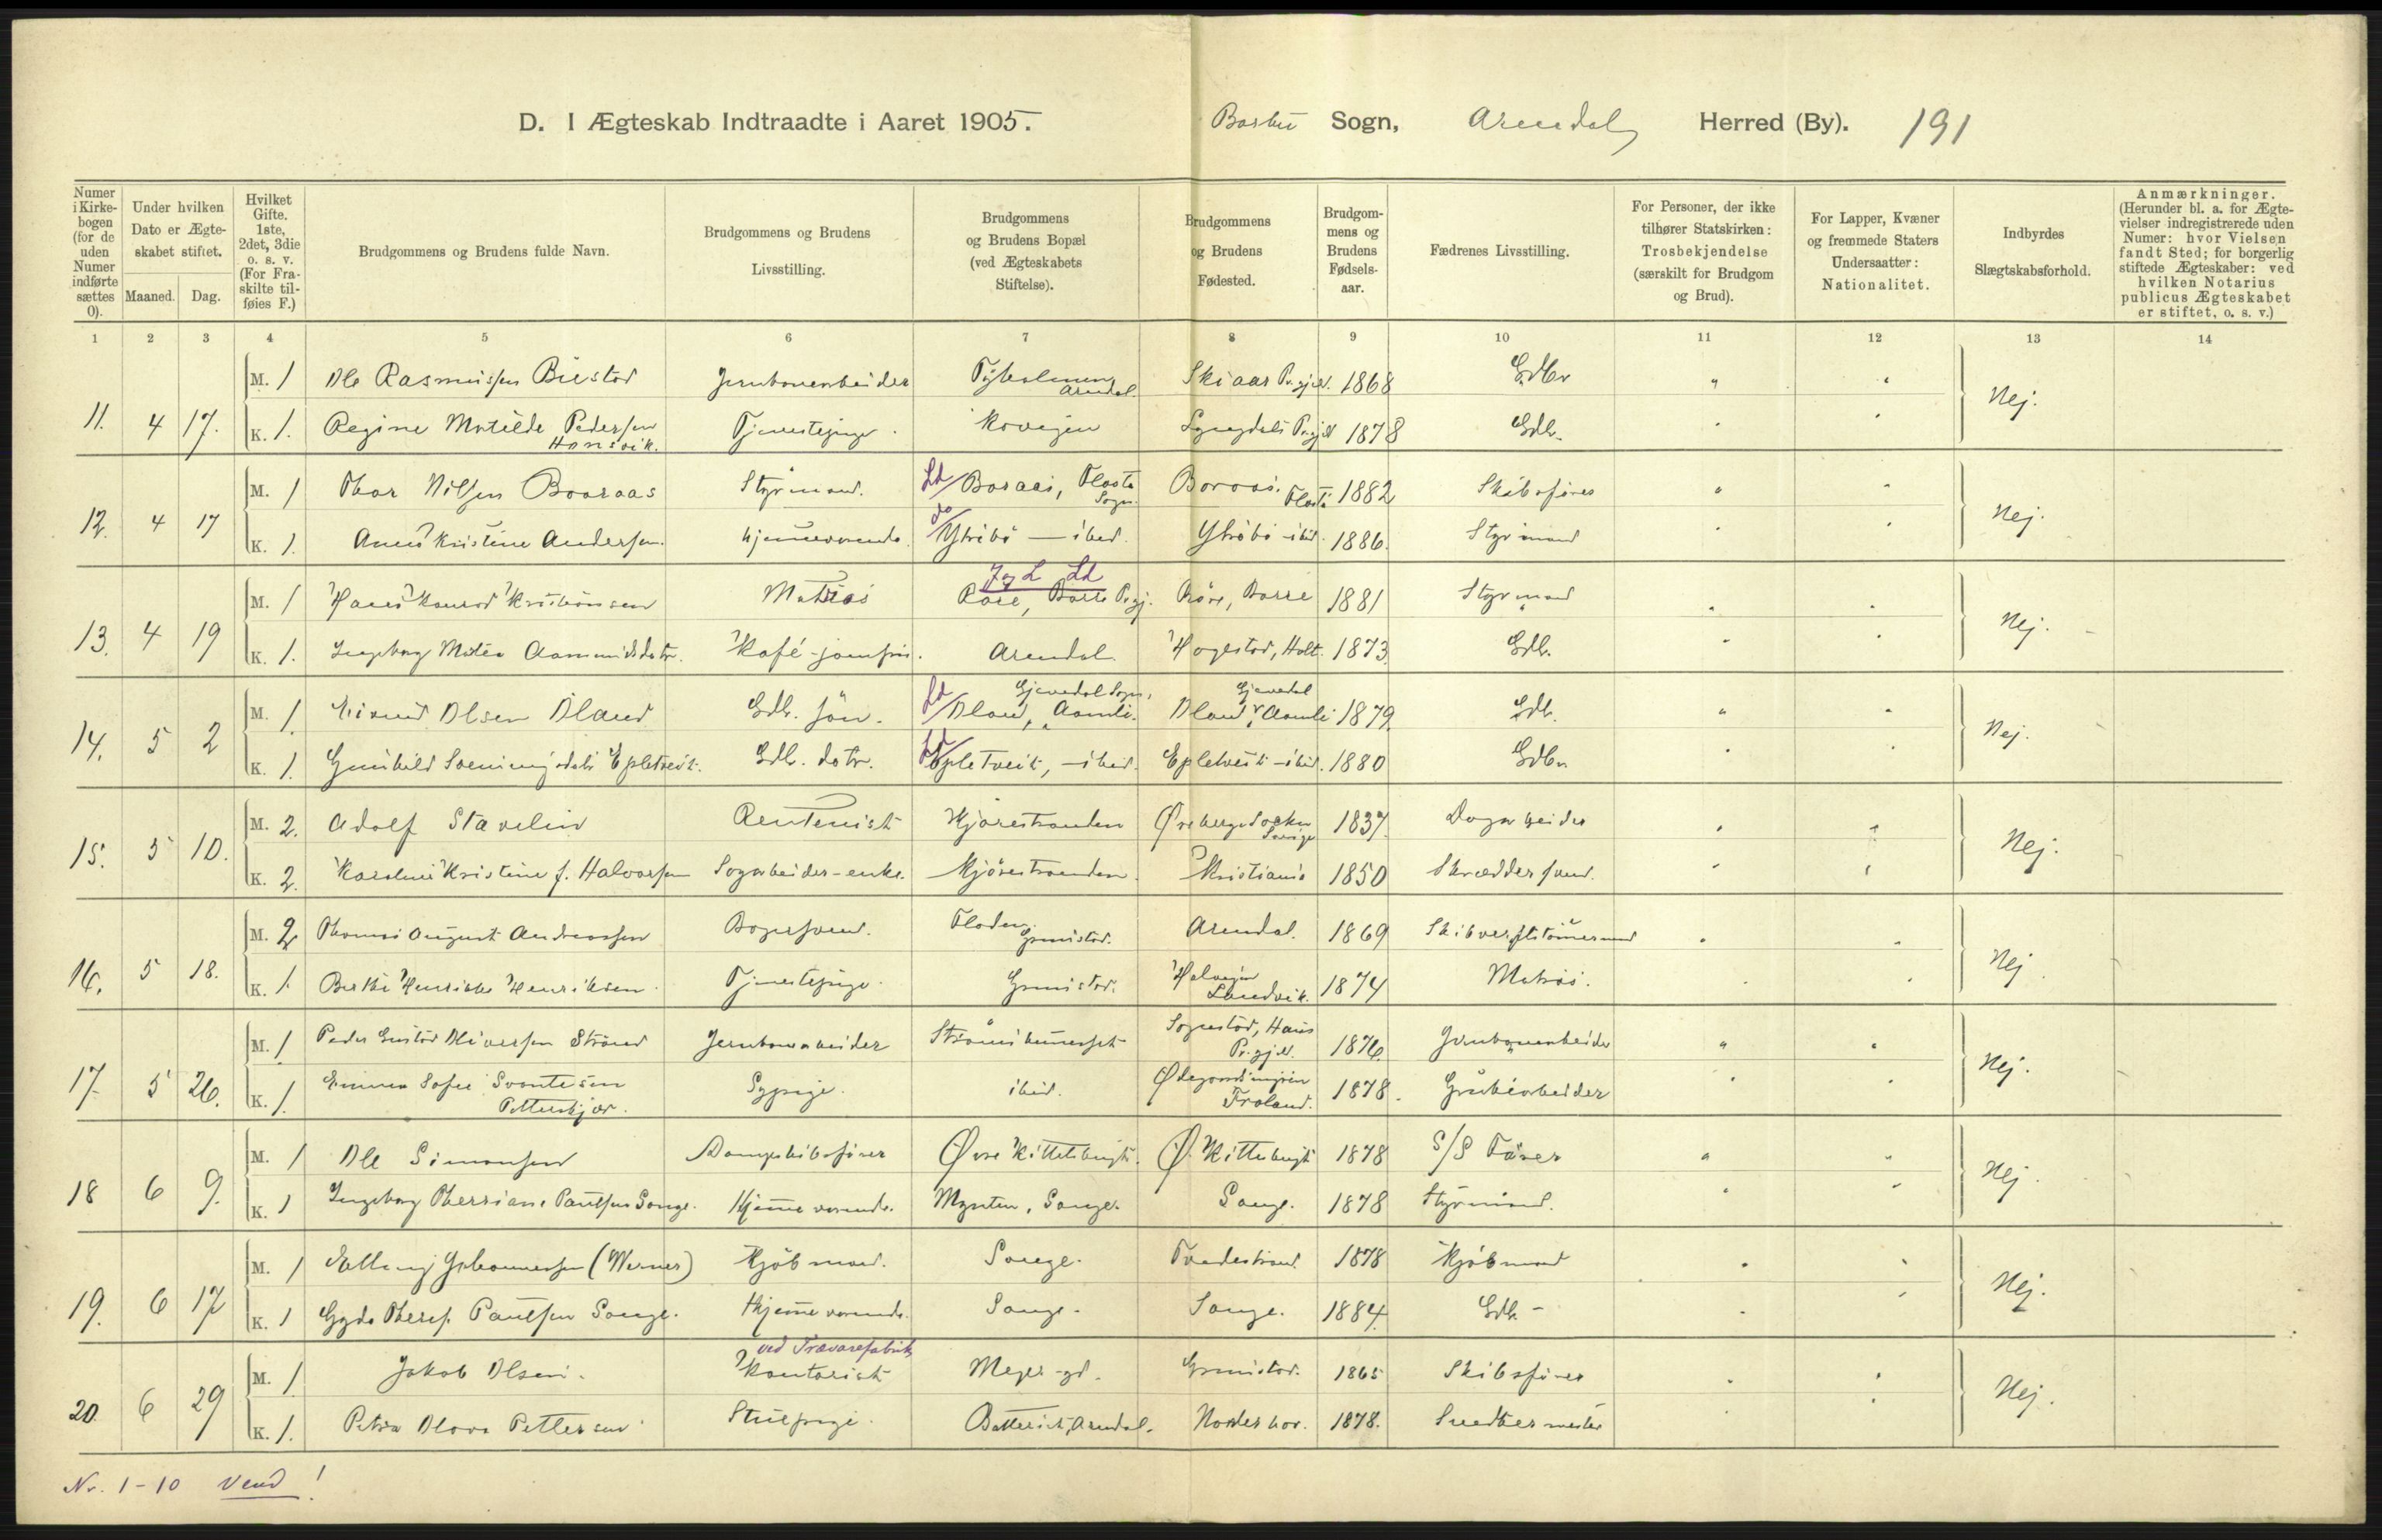 D. I Ægteskab Indtraadte i Aaret 1905. Barbu Sogn, Arendal Herred (By). 191
Numer i Kirkebogen (for de uden Numer indførte sættes 0).
Under hvilken Dato er Ægteskabet stiftet.
Maaned. Dag.
Hvilket Gifte. 1ste, 2det, 3die o. s. v. (For Fraskilte tilføies F.)
Brudgommens og Brudens fulde Navn.
Brudgommens og Brudens Livsstilling.
Brudgommens og Brudens Bopæl (ved Ægteskabets Stiftelse).
Brudgommens og Brudens Fødested.
Brudgommens og Brudens Fødselsaar.
Fædrenes Livsstilling.
For Personer, der ikke tilhører Statskirken: Trosbekjendelse (særskilt for Brudgom og Brud).
For Lapper, Kvæner og fremmede Staters Undersaatter: Nationalitet.
Indbyrdes Slægtskabsforhold.
Anmærkninger. (Herunder bl. a. for Ægtevielser indregistrerede uden Numer: hvor Vielsen fandt Sted; for borgerlig stiftede Ægteskaber: ved hvilken Notarius publicus Ægteskabet er stiftet, o. s. v.)
1 2 3 4 5 6 7 8 9 10 11 12 13 14
11. 4 17. M. 1 Ole Rasmussen Buestad Jernbanearbeider Tyholmen Arendal. 1868 Gdbr. " " Nej.
K. 1. Regine Matilde Pedersen Hansvik. Tjenestepige. Kovejen Lyngdals Prgjld 1878 Gdbr.
12. 4 17 M. 1 Thor Nilsen Booraas Styrmand. Ld Boraas, Flosta Sogn. Boroas. Flosta 1882 Skibsfører " " Nej.
K. 1. Anna Kristine Andersen. hjemmeværende. do Ytrebø — ibid. Ytrebø - ibid. 1886. Styrmand
13. 4 19 M. 1 Hans Konrad Kristiansen Matros J og L Ld Røre, Borre Prgj. Røre, Borre 1881 Styrmand " " Nej.
K. 1. Ingeborg Matea Aasmundsdatr. Kafé-jomfru. Arendal. Hogestad, Holt. 1873. Gdbr.
14. 5 2 M. 1. Eivind Olsen Øland Gdbr. søn. Ld Øland, Gjevedal Sogn, Aamli. Øland, Gjevedal Aamli 1879. Gdbr. " " Nej.
K. 1. Gunhild Sveinungsdatr Epletveit. Gdbr. datr. Ld Epletveit, - ibid. Epletveit - ibid. 1880 Gdbr.
15. 5 10. M. 2. Adolf Stavelin Rentenist Kjørestranden Sverige 1837. Dagarbeider Nej.
K. 2. Karoline Kristine f. Halvorsen Sagarbeider-enke. Kjørestranden. Kristiania 1850 Skræddersvend.
16. 5 18. M. 2 Thomas August Andreassen Bagersvend. Floden, Grimstad. Arendal. 1869 Nej.
K. 1. Berthe Henrikke Henriksen. Tjenestepige. Grimstad. Landvik. 1874 Matros.
17. 5 26. M. 1 Peder Gustav Oliversen Strand Jernbanearbeider Strømsbunesset Haus Prgjld. 1876. Jernbanearbeider " " Nej.
K. 1. Emma Sofie Svantesen Petterskjær. Sypige. ibid. Froland. 1878. Grubearbeider
18 6 9. M. 1 Ole Simonsen Dampskibsfører Øvre Kittelsbugt. Ø. Kittelsbugt 1878 S/S Fører " " Nej.
K. 1 Ingeborg Theresian Paulsen Songe. Hjemmeværende. Mynten, Songe. Songe. 1878 Styrmand.
19. 6 17 M. 1 Elling Johannessen (Werner) Kjøbmand. Songe. Tvedestrand 1878 Kjøbmand Nej.
K. 1 Gyda Theres. Paulsen Songe. Hjemmeværende. Songe. Songe. 1884. Gdbr.
20. 6 29 M. 1 Jakob Olsen. ved Trævarefabrik Kontorist Meyer-gd. Grimstad. 1865 Skibsfører Nej.
K. 1. Petra Olava Pettersen Stuepige. Batteriet, Arendal. Norderhov. 1878. Snedkermester
Nr. 1-10 Vend!